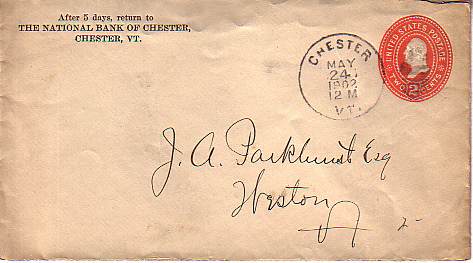 After 5 days, return to
THE NATIONAL BANK OF CHESTER,
CHESTER, VT.
CHESTER
MAY
24
1902
12 M
VT.
UNITED STATES POSTAGE
TWO CENTS
2
J. A. Parkhurst Esq
Weston